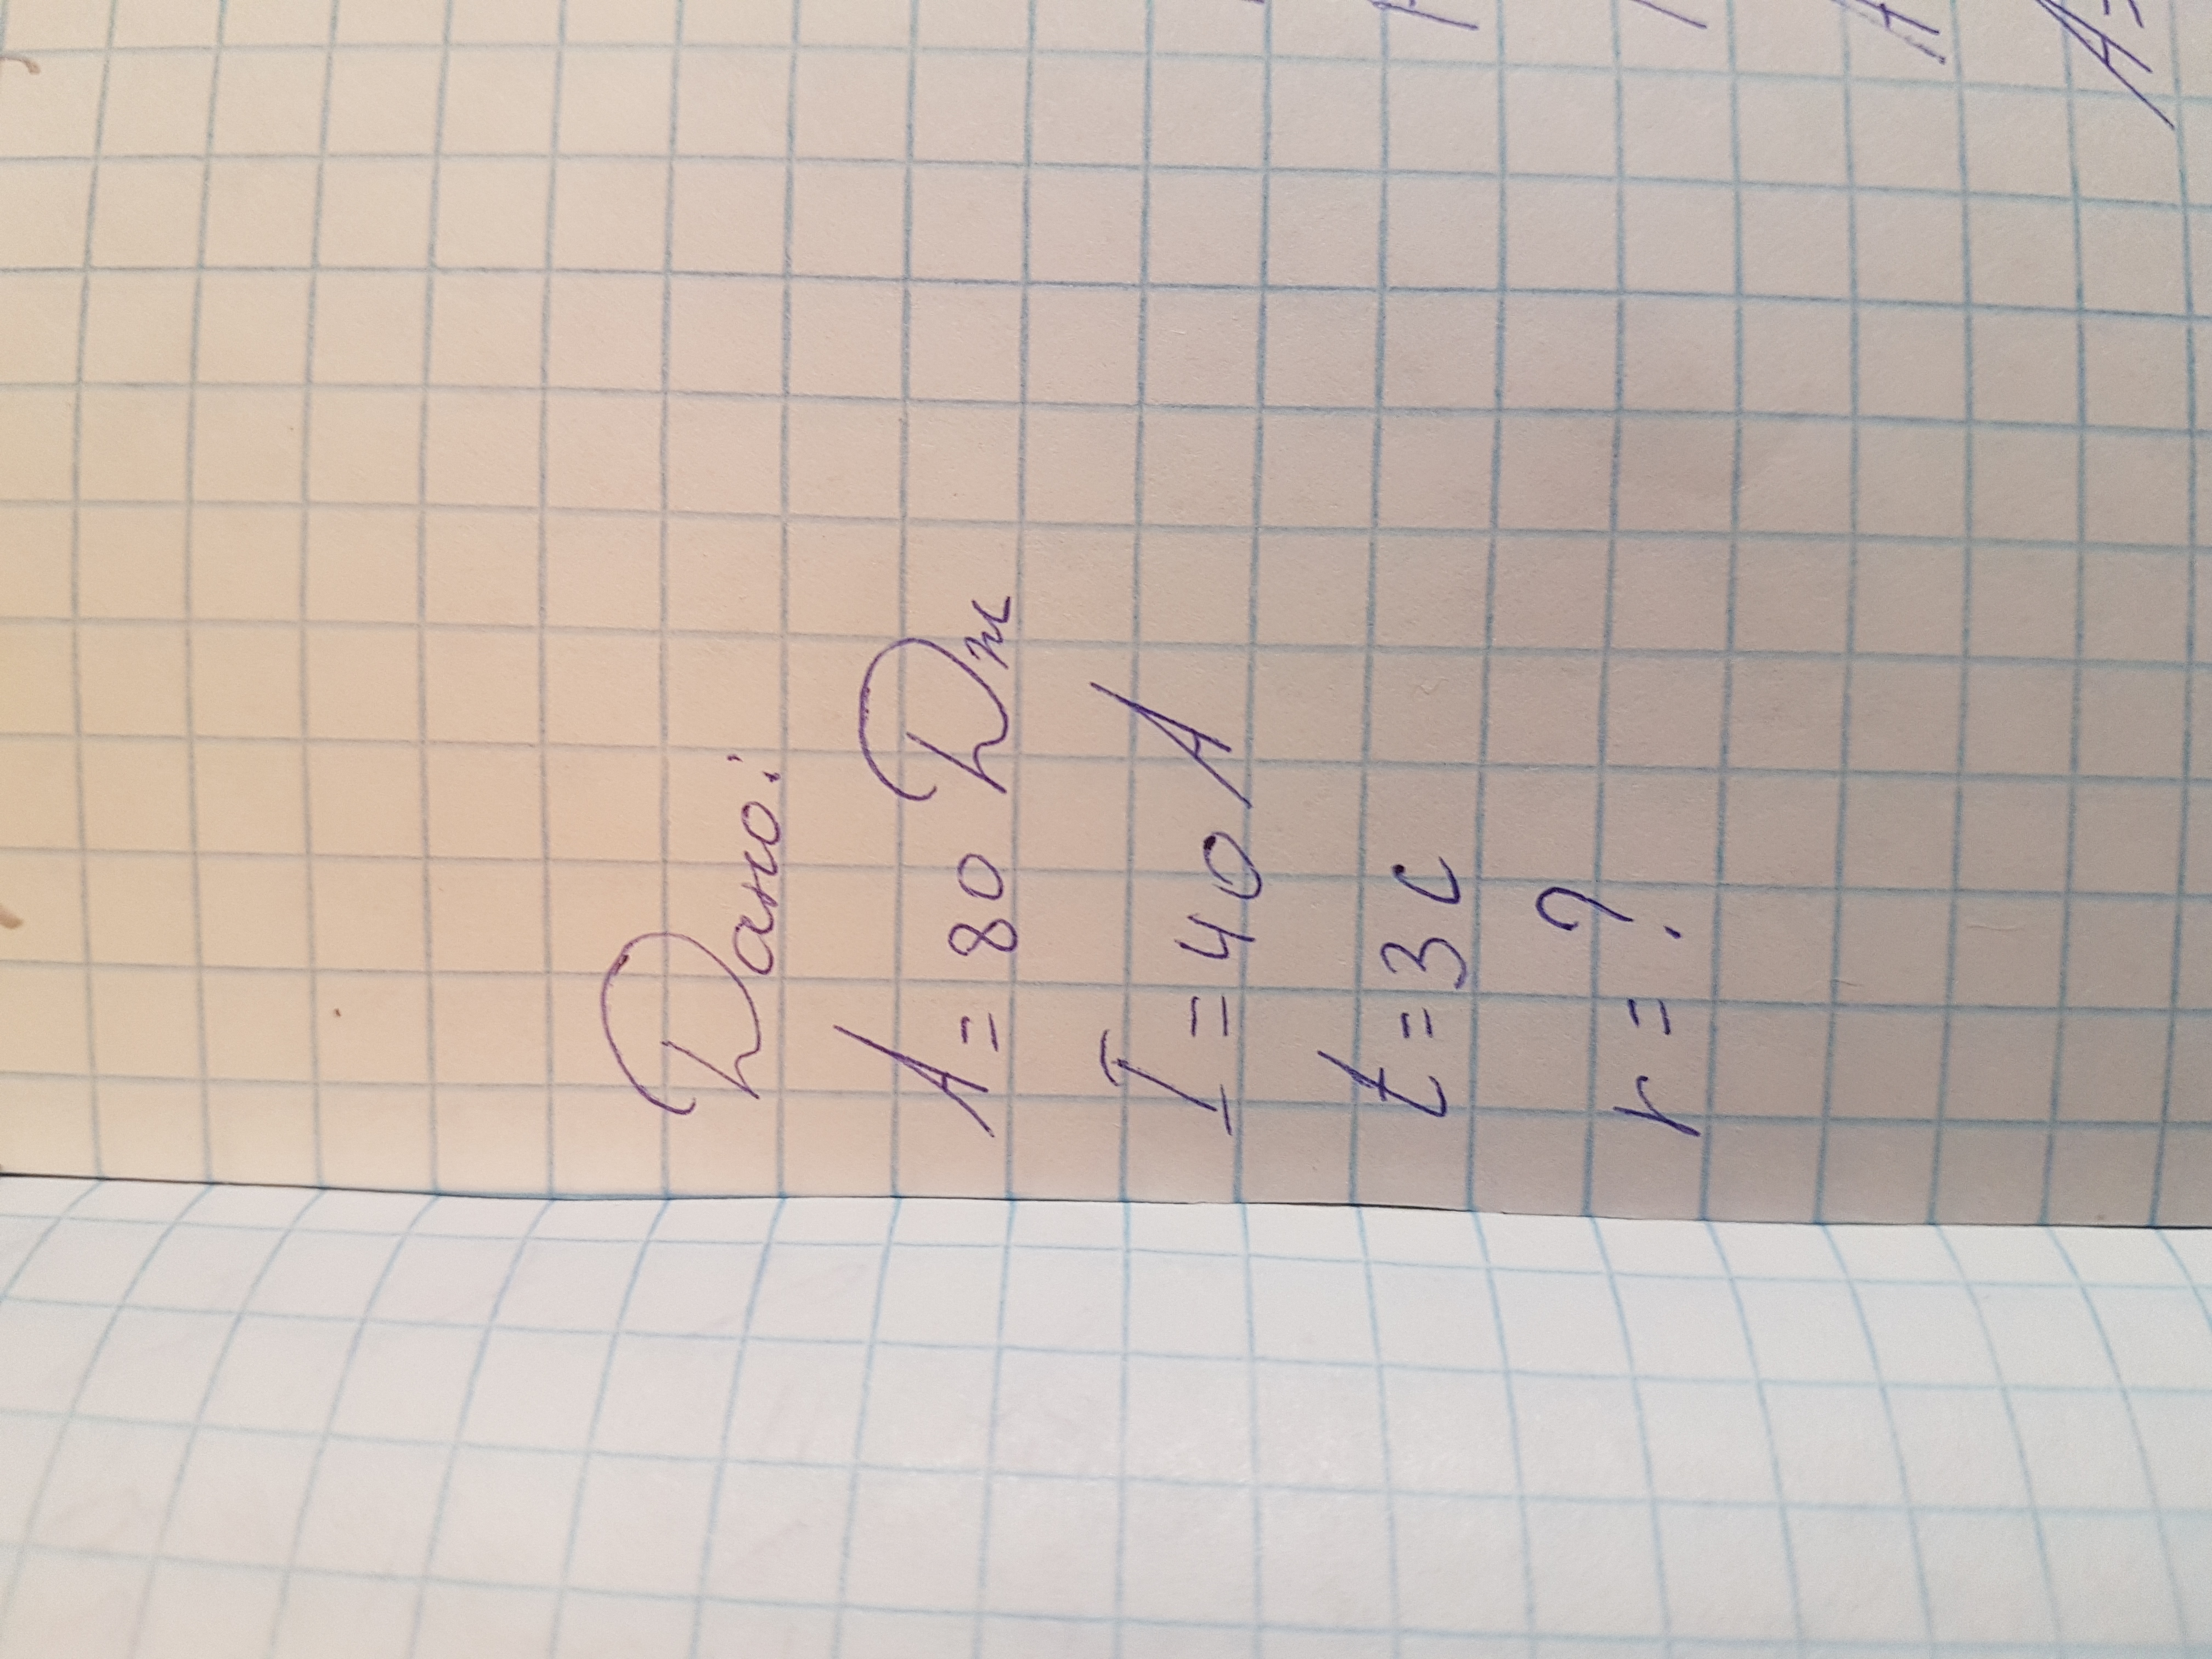 Дано:
A = 80 Дж
I = 40 A
t = 3 c
r = ?
A=